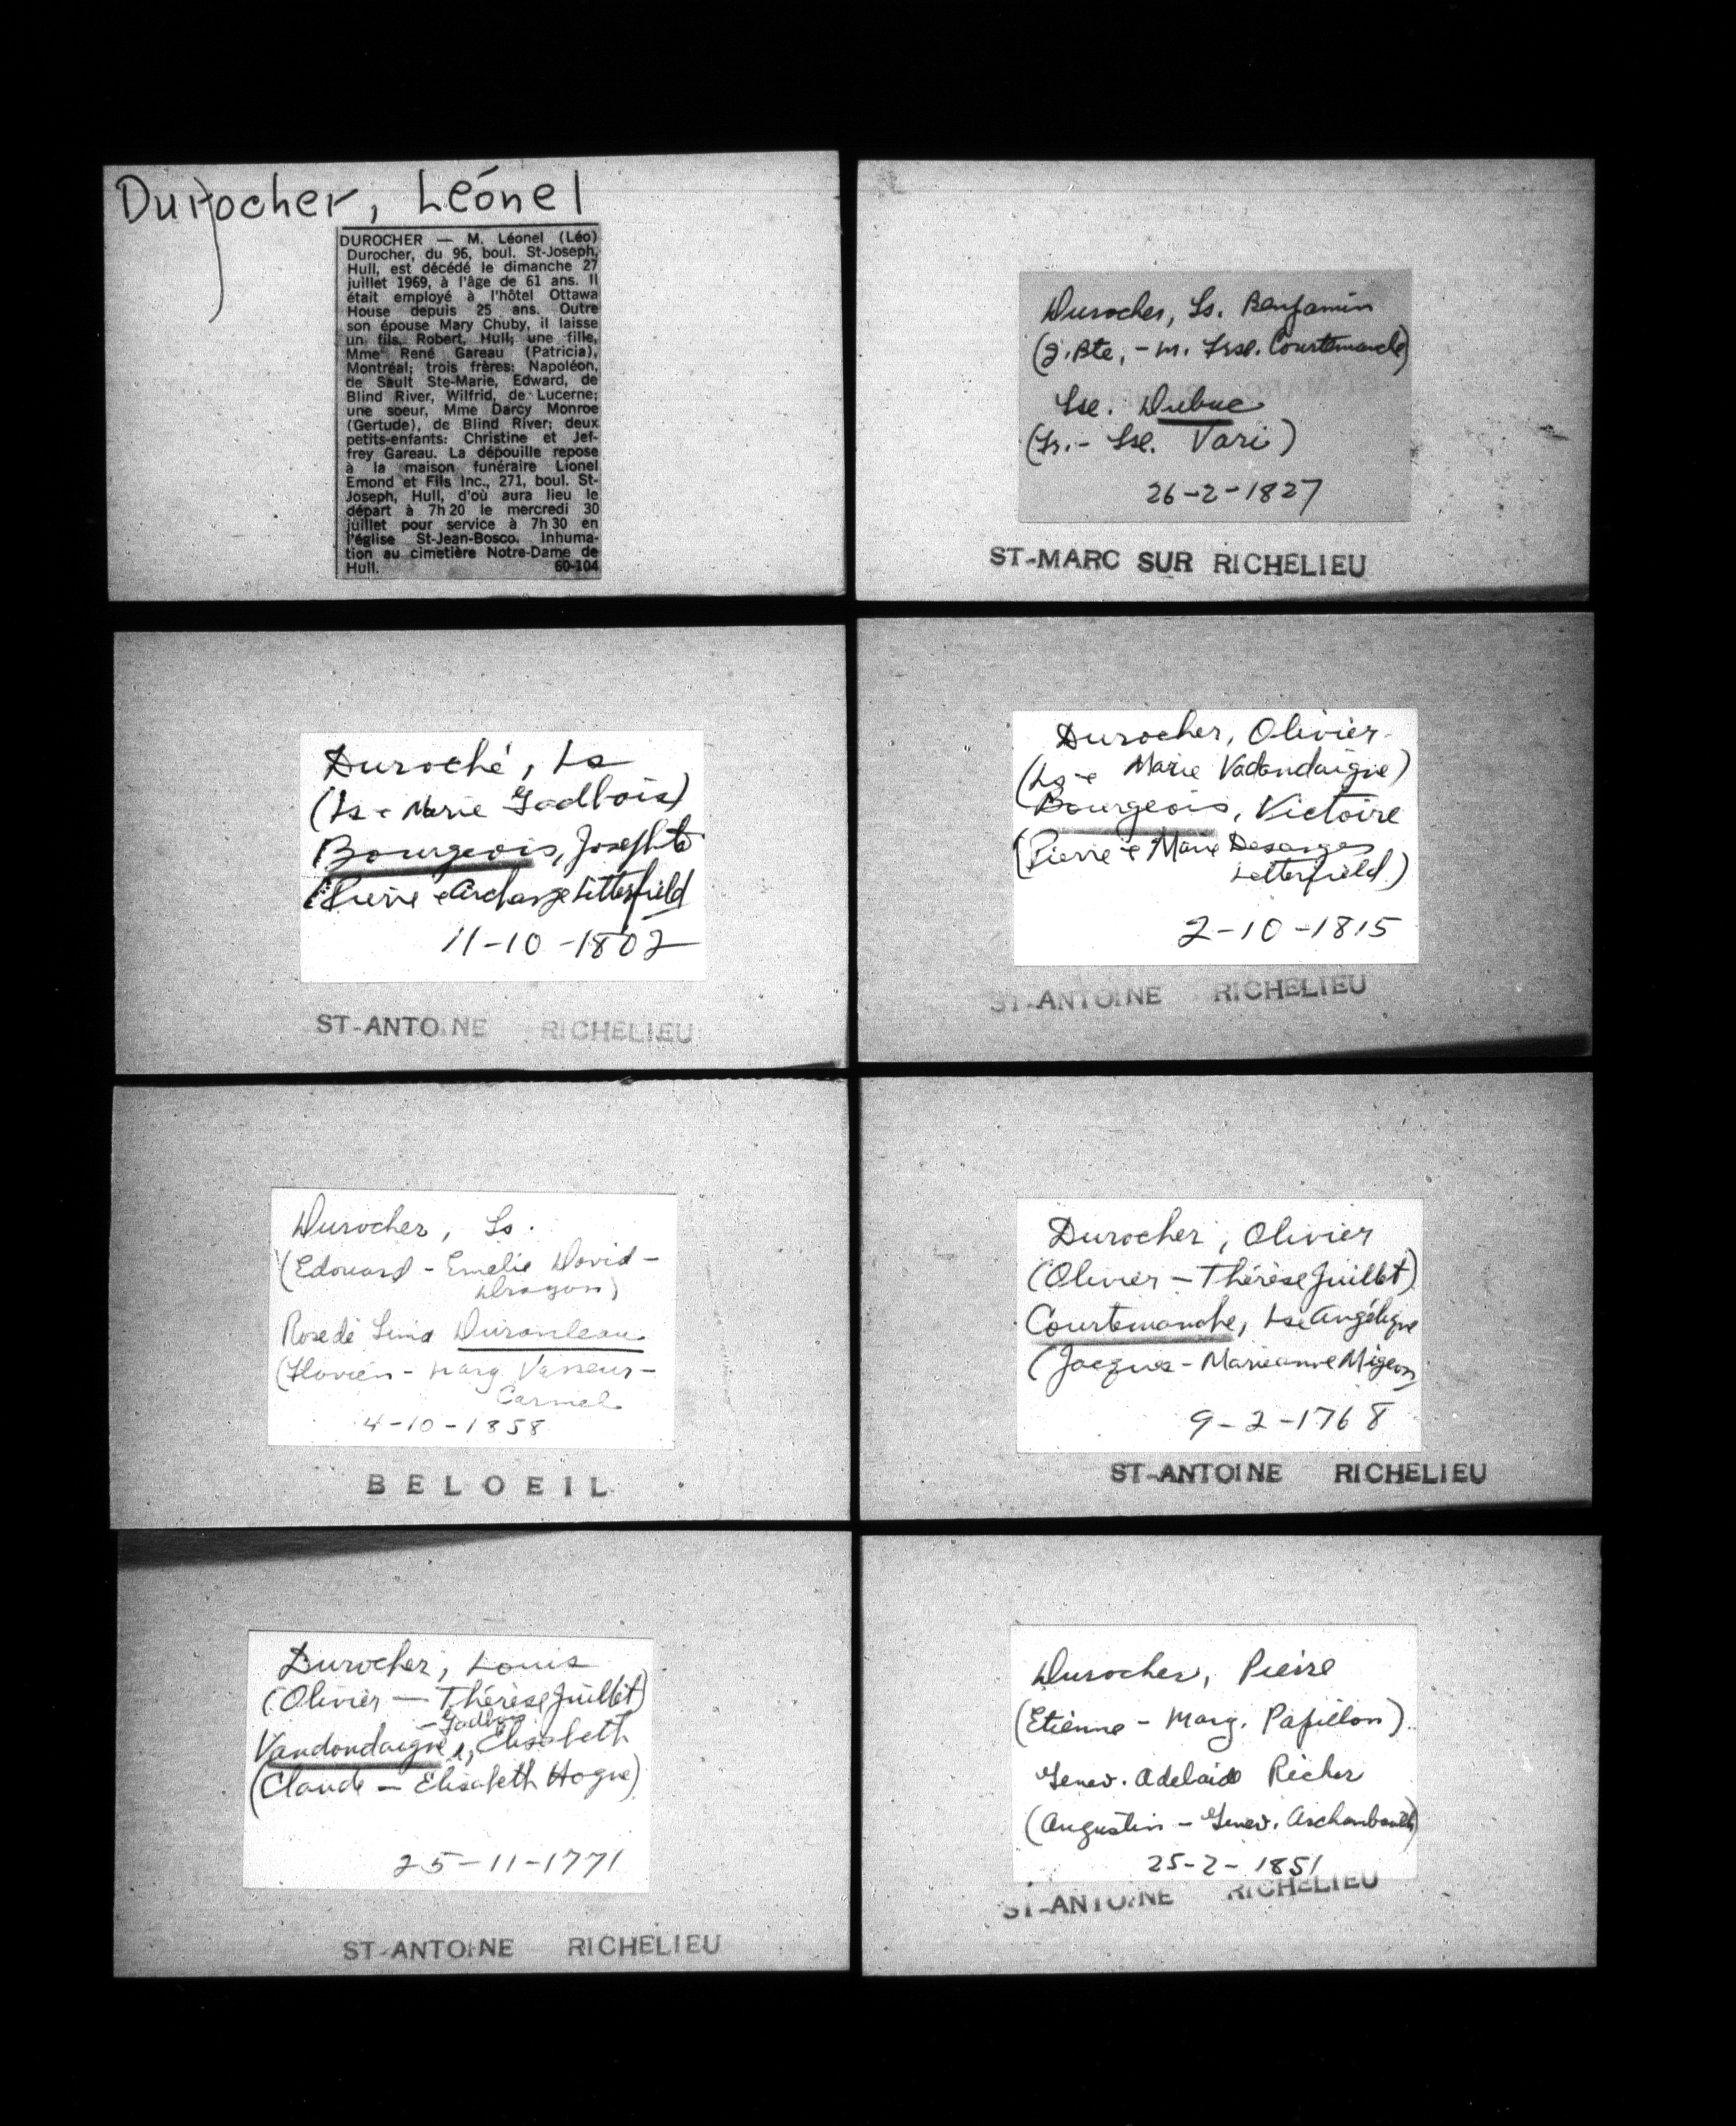 Durocher, Léonel
DUROCHER — M. Léonel (Léo)
Durocher, du 96, boul. St-Joseph,
Hull, est décédé le dimanche 27
juillet 1969, à l'âge de 61 ans. Il
était employé à l'hôtel Ottawa
House depuis 25 ans. Outre
son épouse Mary Chuby, il laisse
un fils, Robert, Hull; une fille,
Mme René Gareau (Patricia),
Montréal; trois frères: Napoléon,
de Sault Ste-Marie, Edward, de
Blind River, Wilfrid, de Lucerne;
une soeur, Mme Darcy Monroe
(Gertude), de Blind River; deux
petits-enfants: Christine et Jef-
frey Gareau. La dépouille repose
à la maison funéraire Lionel
Emond et Fils Inc., 271, boul. St-
Joseph, Hull, d'où aura lieu le
départ à 7h 20 le mercredi 30
juillet pour service à 7h 30 en
l'église St-Jean-Bosco. Inhuma-
tion au cimetière Notre-Dame de
Hull. 60-104
Durocher, Ls. Benjamin
(J. Bte, - m. Frse. Courtemanche)
Lse. Dubuc
(Fr. - Lse. Vari)
26-2-1827
ST-MARC SUR RICHELIEU
Duroché, Ls
(Ls e Marie Gadbois)
Bourgeois, Josephte
(Pierre e Archange Litterfield
11-10-1802
ST-ANTOINE RICHELIEU
Durocher, Olivier
(Ls e Marie Vadandaigne)
Bourgeois, Victoire
(Pierre e Marie Desanges
Letterfield)
2-10-1815
ST-ANTOINE RICHELIEU
Durocher, Ls.
(Edouard - Emélie David -
Dragon)
Rose de Lima Duranleau
(Flavien - Marg. Vasseur -
Carmel
4-10-1858
BELOEIL
Durocher, Olivier
(Olivier — Thérèse Juillet)
Courtemanche, Lse Angélique
(Jacques - Marieanne Migeon)
9-2-1768
ST-ANTOINE RICHELIEU
Durocher, Louis
(Olivier — Thérèse Juillet)
- Gadbois
Vandandaigne, Elisabeth
(Claude — Elisabeth Hogue)
25-11-1771
ST-ANTOINE RICHELIEU
Durocher, Pierre
(Etienne - Marg. Papillon)
Genev. Adelaide Richer
(Augustin - Genev. Archambault)
25-2-1851
ST-ANTOINE RICHELIEU